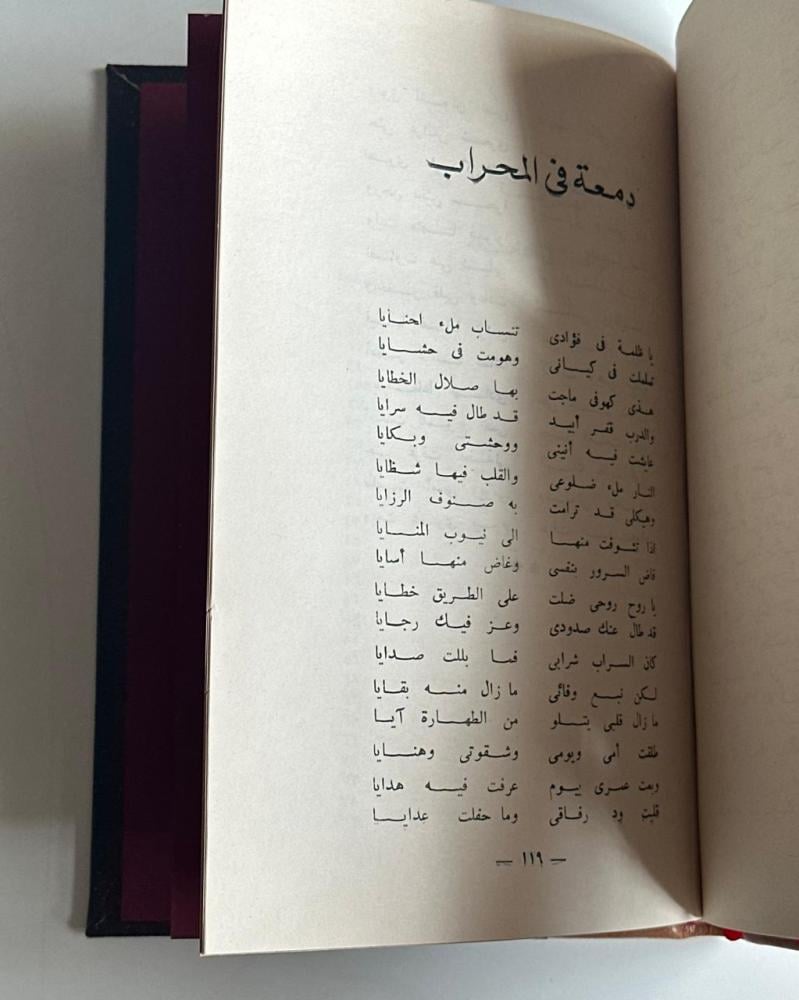 دمعة فى المحراب
يا ظلمة فى فؤادى تنساب ملء احنايا
تململت فى كيانى وهومت فى حشايا
هذى كهوفى ماجت بها صلال الخطايا
والدرب قفر أبيد قد طال فيه سرايا
عايشت فيه أنينى ووحشتى وبكايا
النار ملء ضلوعى والقلب فيها شظايا
وهيكلى قد ترامت به صنوف الرزايا
اذا تشوفت منها الى نيوب المنايا
غاض السرور بنفسى وغاض منها أسايا
يا روح روحى ضلت على الطريق خطايا
قد طال عنك صدودى وعز فيك رجايا
كان السراب شرابى فما بللت صدايا
لكن نبع وفائى ما زال منه بقايا
ما زال قلبى يتلو من الطهارة آيا
طلقت أمى ويومى وشقوتى وهنايا
وبعت عمرى بيوم عرفت فيه هدايا
قليت ود رفاقى وما حفلت عدايا
— ١١٩ —